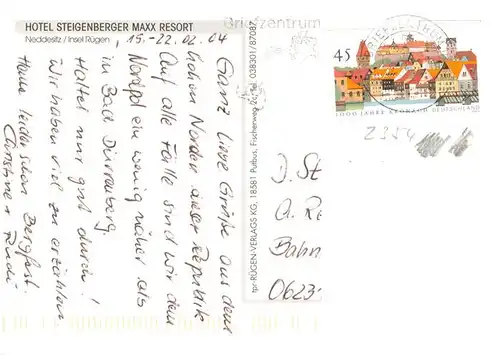 HOTEL STEIGENBERGER MAXX RESORT
Neddesitz / Insel Rügen, 15.-22.02.04
Ganz liebe Grüße aus dem
hohen Norden dieser Republik
Auf alle Fälle sind wir dem
Nordpol ein wenig näher als
in Bad Dürrenberg.
Haltet nur gut durch!
Wir haben viel zu erzählen
Heute leider schon Bergfest.
Christine + Rudi
tpr-RÜGEN-VERLAGS KG, 18581 Putbus, Fischerweg 2c, Tel. 03830/8706
Briefzentrum
45
1000 JAHRE KRONACH DEUTSCHLAND
2354
D. St
A. Re
Bahn
0623